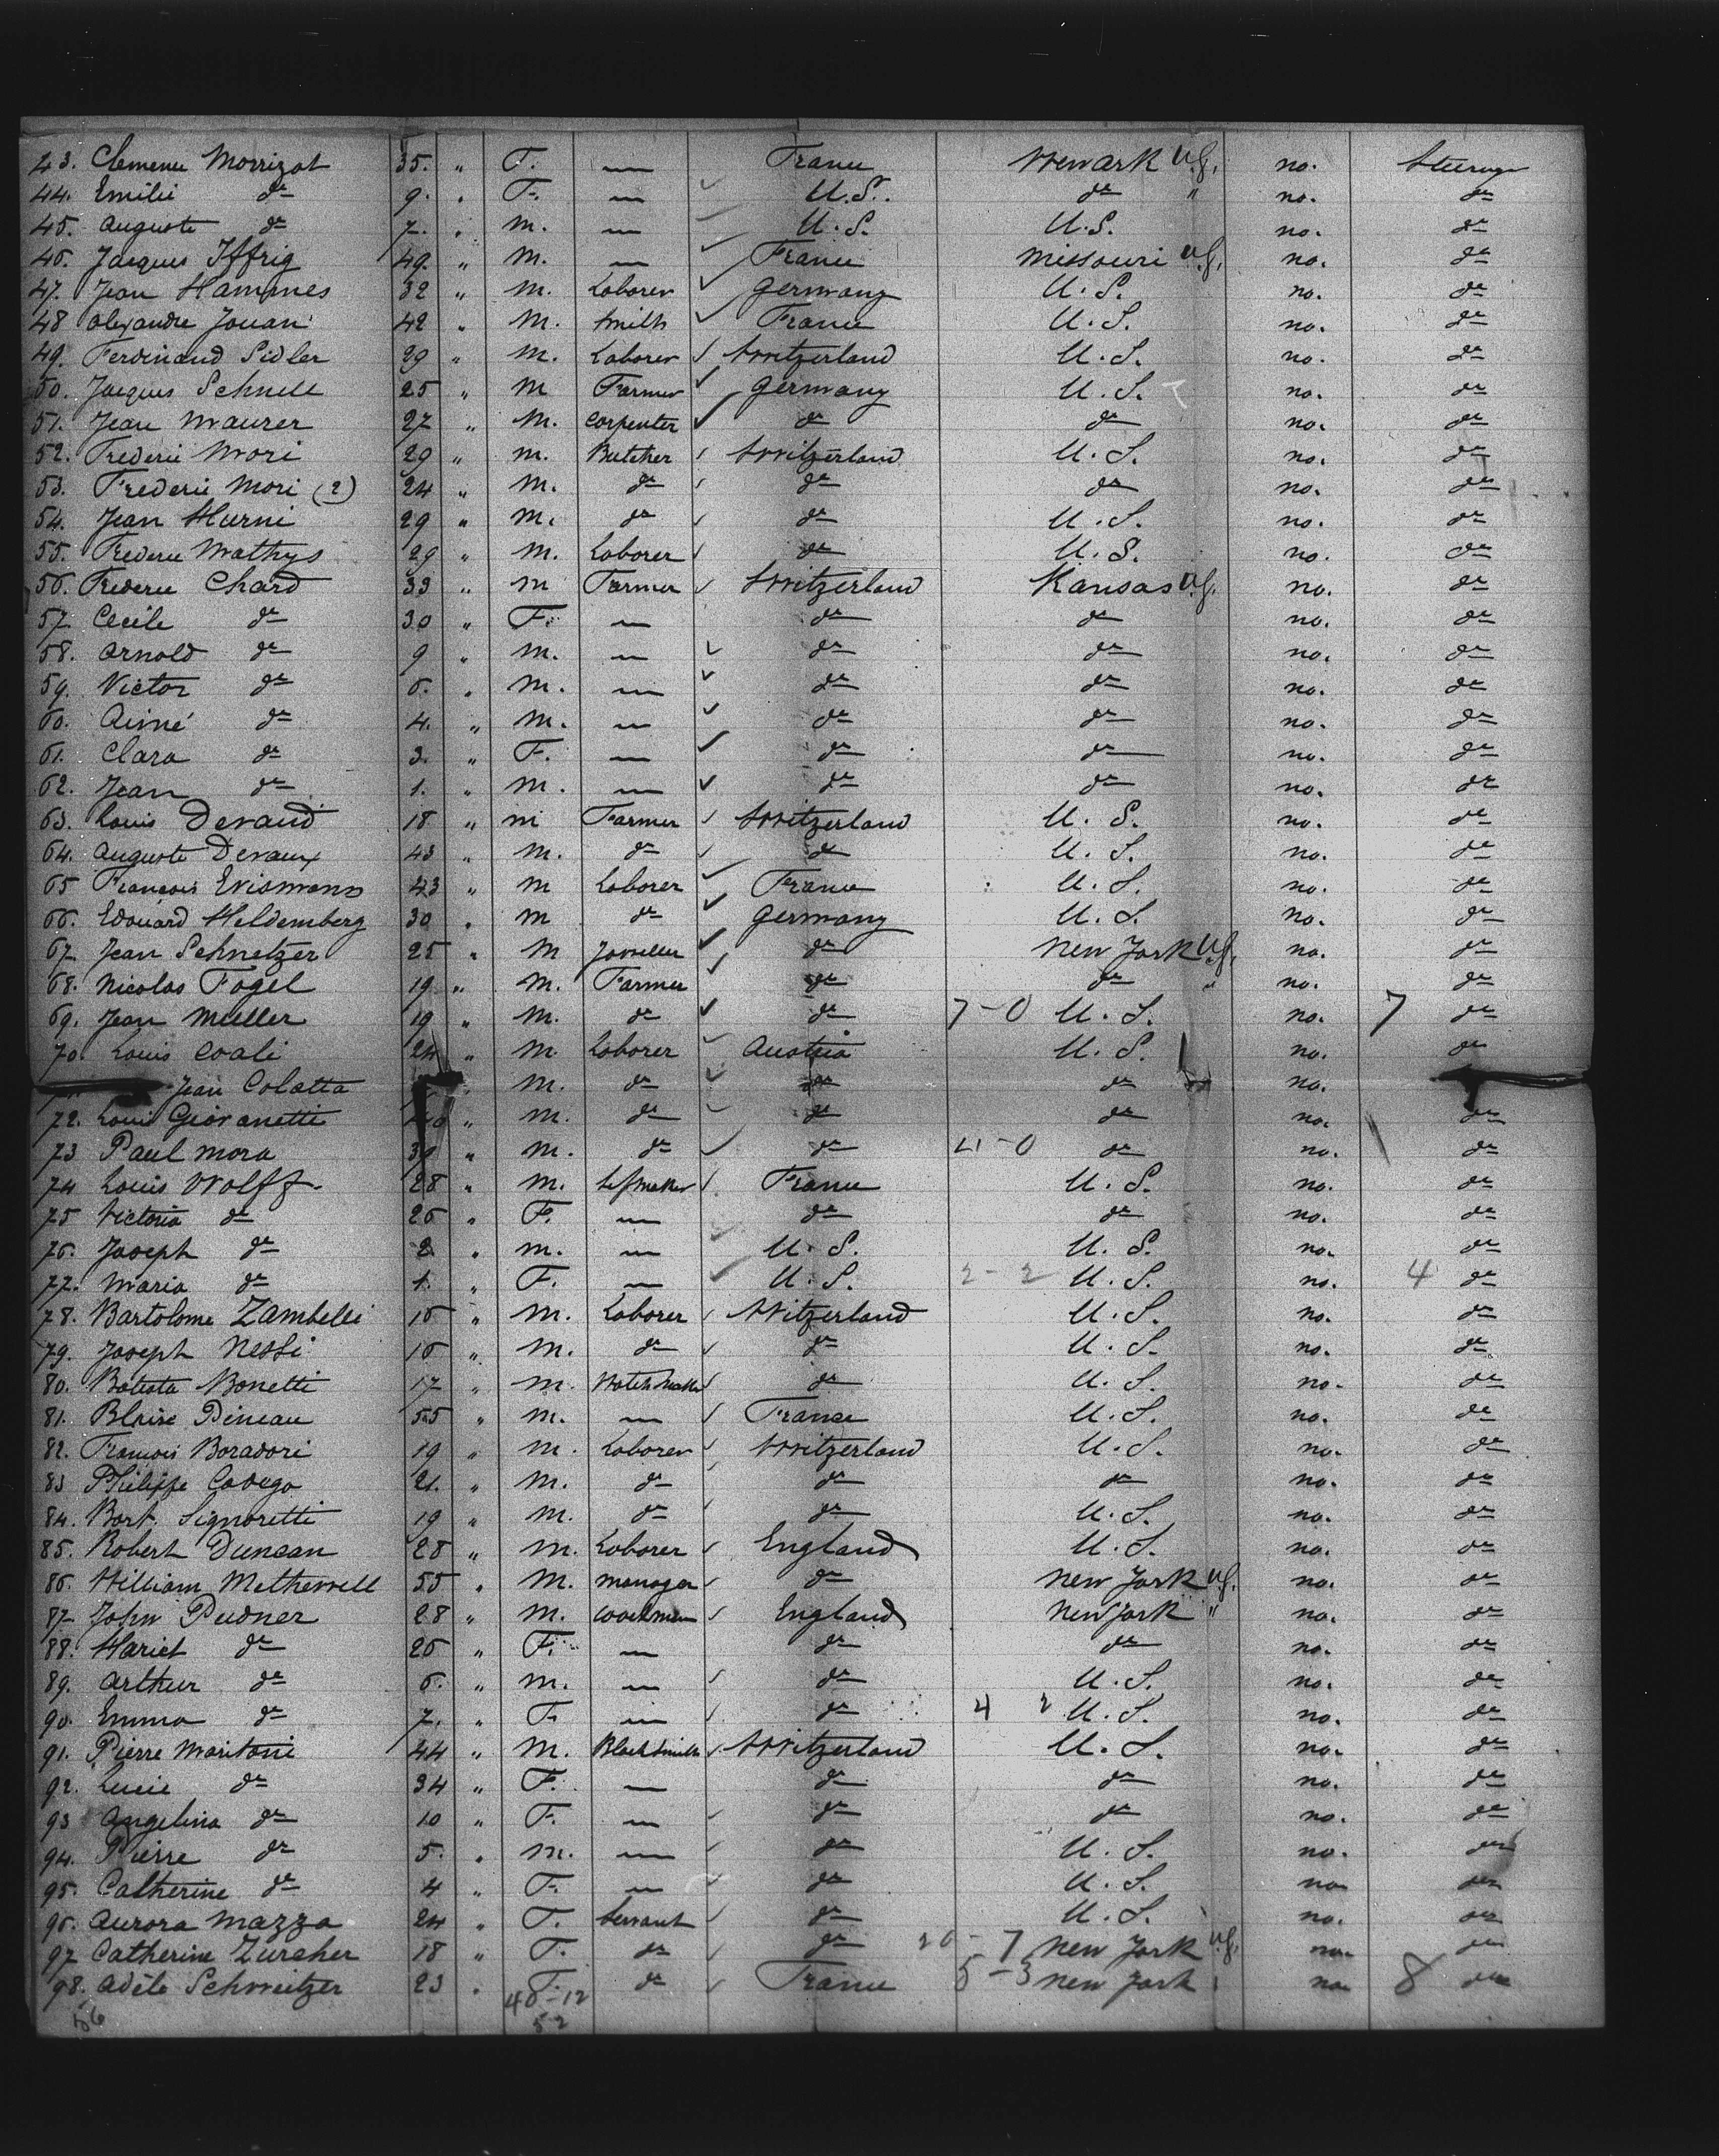 43. Clemence Morrizot 35. " F. — France Newark U.S. no. Steerage
44. Emilie do 9. " F. — U.S. do " no. do
45. Auguste do 7. " m. — U.S. U.S. no. do
46. Jacques Iffrig 49. " m. — France Missouri U.S. no. do
47. Jean Hammes 32 " m. Laborer Germany U.S. no. do
48 Alexandre Jouan 42 " m. Smith France U.S. no. do
49. Ferdinand Sidler 29 " m. Laborer Switzerland U.S. no. do
50. Jacques Schnell 25 " m Farmer Germany U.S. no. do
51. Jean Maurer 27 " m. Carpenter do do no. do
52. Frederic Mori 29 " m. Butcher Switzerland U.S. no. do
53. Frederic Mori (2) 24 " m. do do do no. do
54. Jean Hurni 29 " m. do do U.S. no. do
55. Frederic Mathys 29 " m. Laborer do U.S. no. do
56. Frederic Chard 33 " m Farmer Switzerland Kansas U.S. no. do
57. Cecile do 30 " F. — do do no. do
58. Arnold do 9 " m. — do do no. do
59. Victor do 6. " m. — do do no. do
60. Aimé do 4. " m. — do do no. do
61. Clara do 3. " F. — do do no. do
62. Jean do 1. " m. — do do no. do
63. Louis Devaud 18 " m Farmer Switzerland U.S. no. do
64. Auguste Devaux 43 " m. do do U.S. no. do
65 François Erismann 43 " m Laborer France U.S. no. do
66. Edouard Heldemberg 30 " m do Germany U.S. no. do
67. Jean Schnetzer 25 " m Joweller do New York U.S. no. do
68. Nicolas Fogel 19 " m. Farmer do do " no. do
69. Jean Muller 19 " m. do do 7-0 U.S. no. 7 do
70. Louis Coali 24 " m. Laborer Austria U.S. no. do
Jean Colatta m. do do do no.
72. Louis Giovanetti " m. do do do no. do
73 Paul Mora " m. do do 4-0 do no. do
74 Louis Wolff 28 " m. France U.S. no. do
75 Victoria do 26 " F. — do do no. do
76. Joseph do 2. " m. — U.S. U.S. no. do
77. Maria do 1. " F. — U.S. 2-2 U.S. no. 4 do
78. Bartolome Zambelli 16 " m. Laborer Switzerland U.S. no. do
79. Joseph Nessi 16 " m. do do U.S. no. do
80. Batista Bonetti 17 " m. Watchmaker do U.S. no. do
81. Blaise Pineau 55 " m. — France U.S. no. do
82. François Boradori 19 " m. Laborer Switzerland U.S. no. do
83 Philippe Codega 21. " m. do do do no. do
84. Bart. Signoretti 19 " m. do do U.S. no. do
85. Robert Duncan 28 " m. Laborer England U.S. no. do
86. William Metherell 55 " m. Manager do New York U.S. no. do
87. John Pudner 28 " m. England New York " no. do
88. Hariet do 26 " F. — do do no. do
89. Arthur do 6. " m. — do U.S. no. do
90. Emma do 7. " F. — do 4 2 U.S. no. do
91. Pierre Maritoni 44 " m. Blacksmith Switzerland U.S. no. do
92. Lucie do 34 " F. — do do no. do
93 Angelina do 10 " F. — do do no. do
94. Pierre do 5. " m. — do U.S. no. do
95. Catherine do 4 " F. — do U.S. no do
96. Aurora Mazza 24 " F. Servant do U.S. no. do
97 Catherine Zurcher 18 " F. do do 20-7 New York U.S. no do
98. Adèle Schweitzer 23 " F. do France 5-3 New York " no 8 do
56 40-12
52